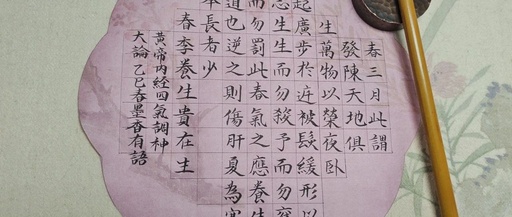 春三月此謂
發陳天地俱
生萬物以榮夜臥
起廣步於庭被髮緩形以
志生生而勿殺予而勿奪
而勿罰此春氣之應養生
道也逆之則傷肝夏為寒
奉長者少
春季養生貴在生
黃帝內經四氣調神
大論乙巳春墨香有語